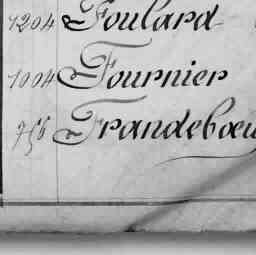 1204 Foulard
1004 Fournier
756 Frandebœu